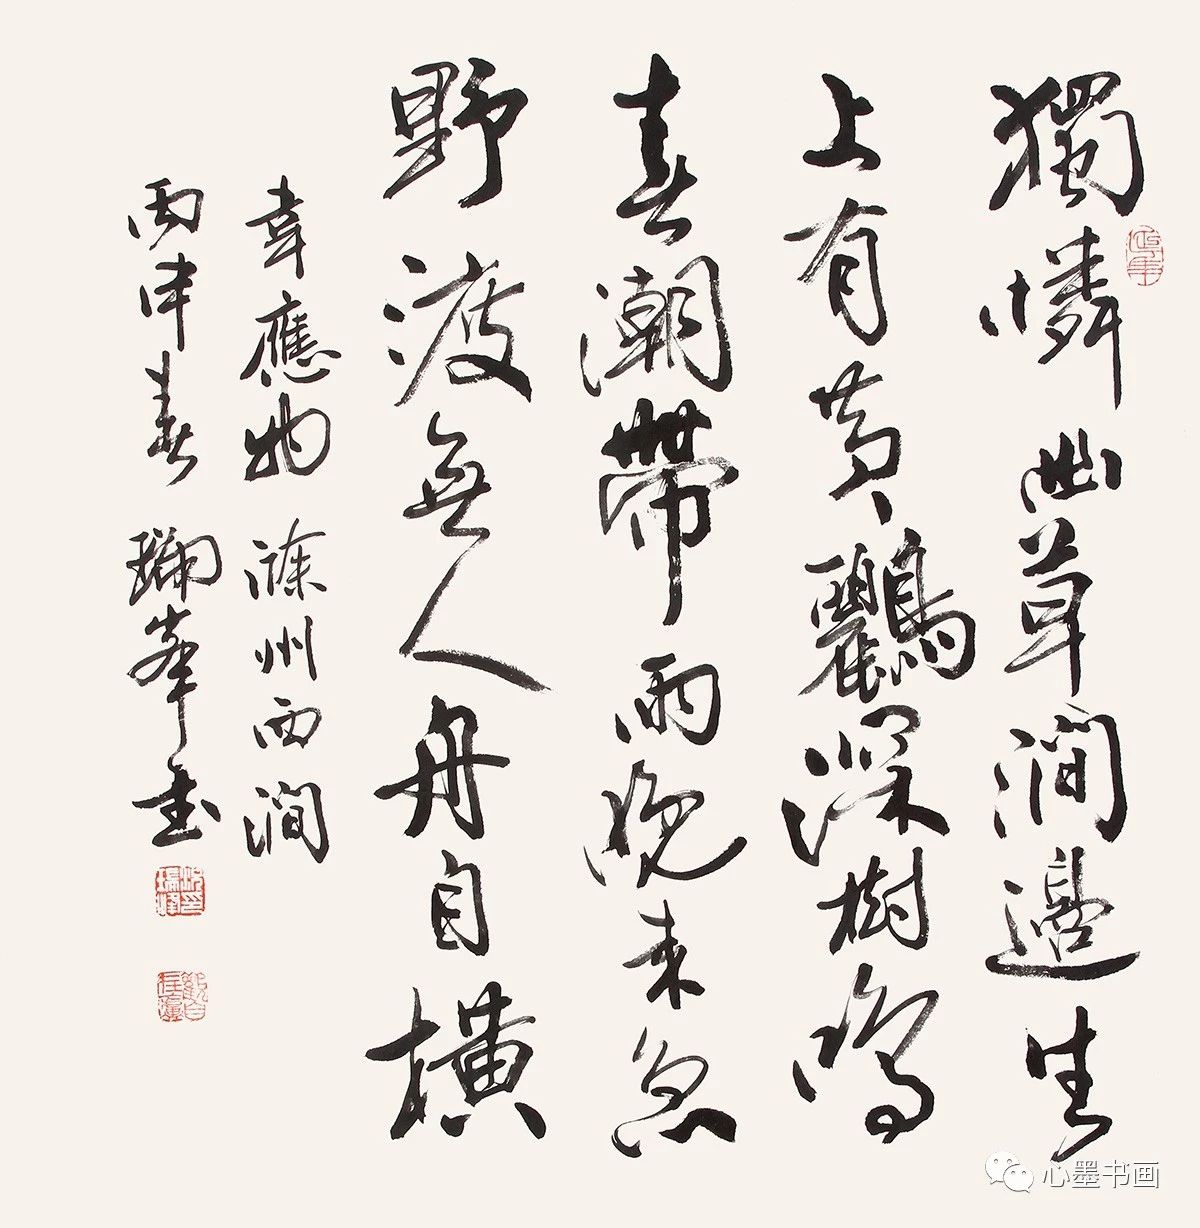 獨憐幽草澗邊生
上有黃鸝深樹鳴
春潮帶雨晚来急
野渡無人舟自橫
韋應物 滁州西澗
丙申春 瑞峯書
心墨书画